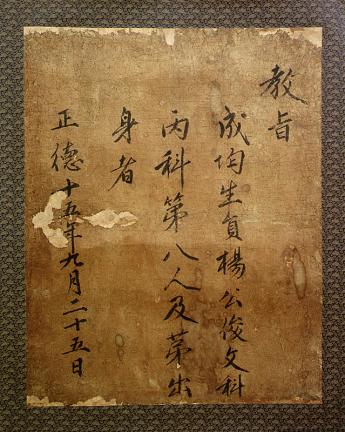 教旨
成均生員楊公俊文科
丙科第八人及第出
身者
正德十五年九月二十五日